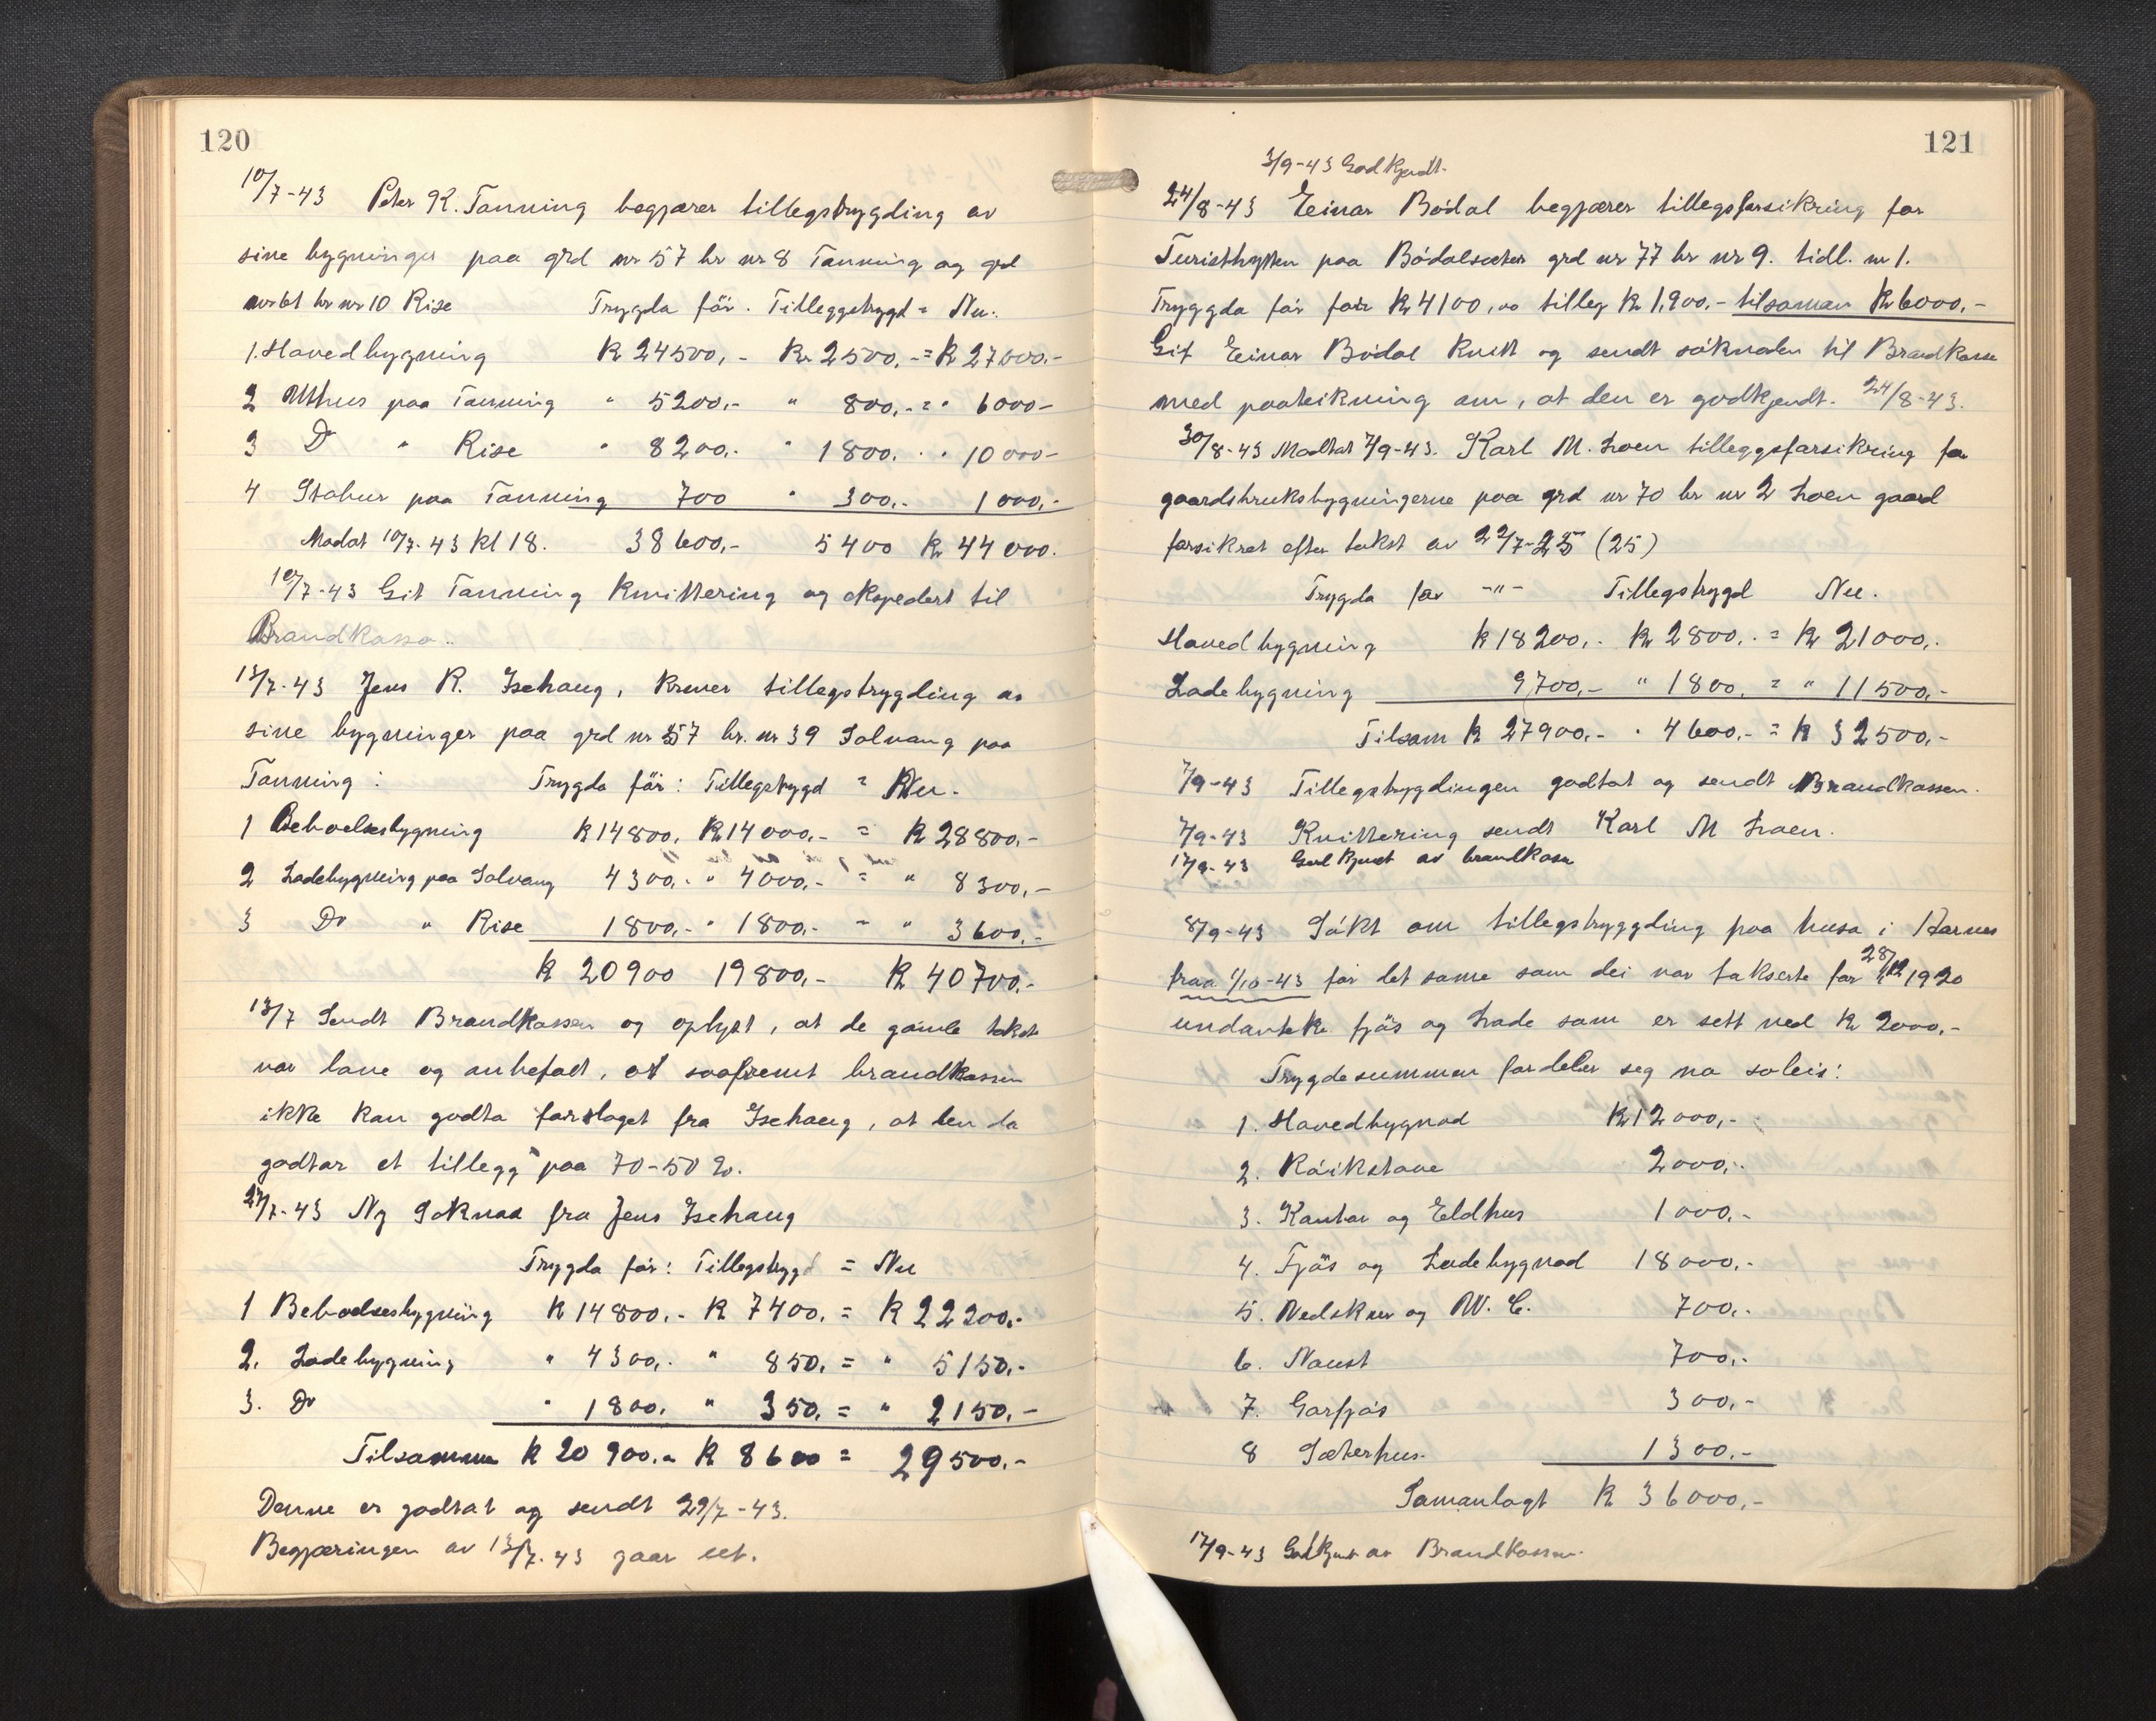 120
10/7-43 Peter K. Tanning begjærer tillegstrygding av
sine bygninger paa grd nr 57 br nr 8 Tanning og grd
nr 61 br nr 10 Rise Trygda fór. Tilleggstrygd = Nu.
1. Hovedbygning K 24500,- Kr 2500,- = K 27000,-
2 Uthus paa Tanning " 5200,- " 800,- = " 6000-
3 Do " Rise " 8200.- " 1800. . " 10000-
4 Stabur paa Tanning 700 " 300,- 1000,-
Modat 10/7-43 kl 18. 38600,- 5400 Kr 44000.
10/7-43 Git Tanning Kvittering og ekspedert til
Brandkassa..
13/7-43 Jens R. Isehaug, krever tillegstrygding av
sine bygninger paa grd nr 57 br. nr 39 Solvang paa
Tanning: Trygda fór: Tillegstrygd = Nu.
1 Beboelsesbygning K 14800, K 14000,- = K 28800,-
2 Ladebygning paa Solvang 4300,- " 4000,- = " 8300,-
3 Do " Rise 1800,- " 1800,- = " 3600,-
K 20900 19800,- K 40700,-
13/7 Sendt Brandkassen og oplyst, at de gamle takst
var lave og anbefalt, at saafremt brandkassen
ikke kan godta forslaget fra Isehaug, at den da
godtar et tillegg paa 70-50 %.
27/7-43 Ny Soknad fra Jens Isehaug
Trygda fór: Tillegstrygd = Nu
1 Beboelsesbygning K 14800.- K 7400. = K 22200.-
2. Ladebygning " 4300,- " 850. = " 5150.-
3. Do " 1800. " 350. = " 2150.-
Tilsammen K 20900.- K 8600 = 29500.-
Denne er godtat og sendt 29/7-43.
Begjæringen av 13/7-43 gaar ut.
121
3/9-43 Godkjendt.
24/8-43 Einar Bódal begjærer tillegsforsikring for
Turisthytten paa Bódalsæter grd nr 77 br nr 9. tidl. nr 1.
Tryggda fór for K 4100,00 tilleg K 1,900.- tilsaman K 6000,-
Git Einar Bódal kvitt og sendt sóknaden til Brandkasse
med paateikning om, at den er godkjendt. 24/8-43.
30/8-43 Modtat 7/9-43. Karl M. Loen tilleggsforsikring for
gaardsbruksbygningerne paa grd nr 70 br nr 2 Loen gaard
forsikret efter takst av 22/7-25 (25)
Trygda for -"- Tillegstrygd Nu.
Hovedbygning K 18200,- K 2800,- = K 21000,-
Ladebygning 9700,- " 1800, = " 11500,-
Tilsam K 27900,- " 4600,- = K 32500,-
7/9-43 Tillegstrygdingen godtat og sendt Brandkassen.
7/9-43 Kvittering sendt Karl M Loen.
17/9-43 Godkjendt av brandkasse
8/9-43 Sókt om tillegstryggding paa husa i Aarnes
fraa 1/10-43 fór det same som dei var takserte for 28/12 1920
undantekke fjós og Lade som er sett ned K 2000,-
Trygdesummen fordeler seg na soleis:
1. Hovedbygnad K 12000,-
2. Róikstove 2000,-
3. Kanbar og Eldhus 1000,-
4. Fjós og Ladebygnad 18000,-
5. Vedskur og W. C. 700,-
6. Naust 700,-
7. Garfjós 300,-
8 Sæterhus 1300,-
Samanlagt K 36000,-
17/9-43 Godkjent av Brandkassen.